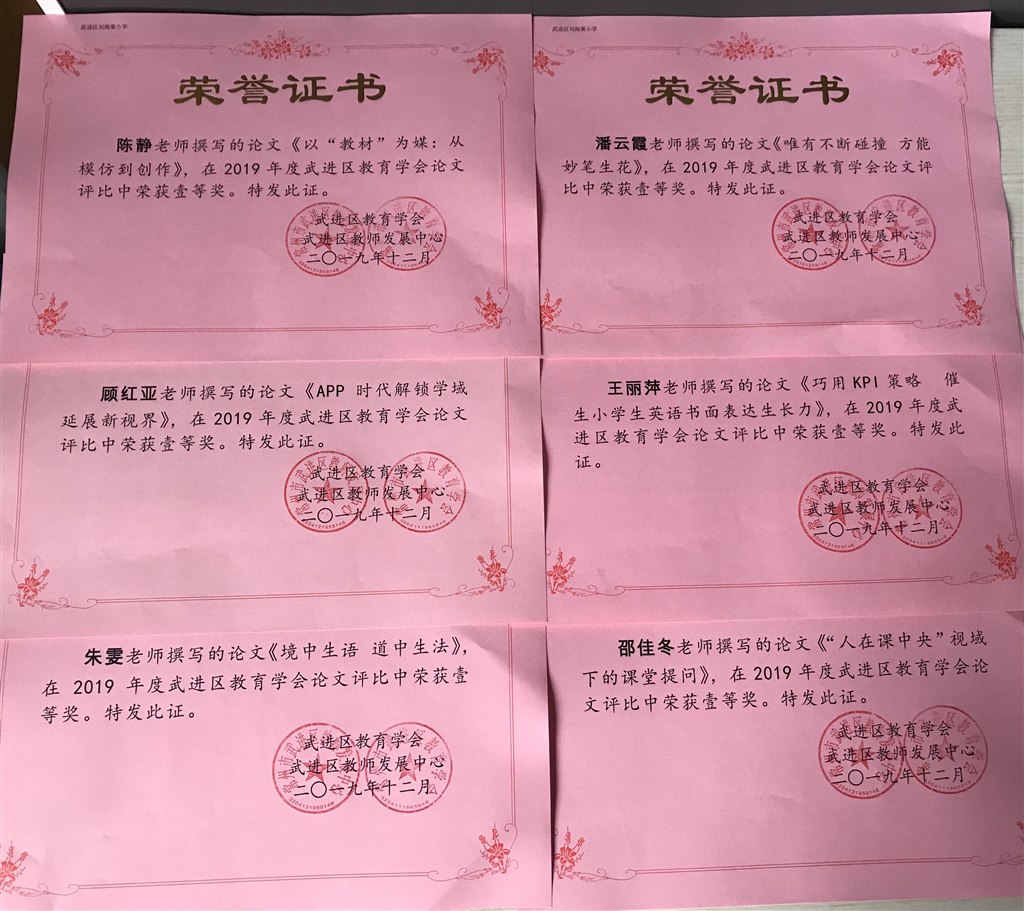 武进区刘海粟小学
荣誉证书
陈静老师撰写的论文《以“教材”为媒：从
模仿到创作》，在2019年度武进区教育学会论文
评比中荣获壹等奖。特发此证。
武进区教育学会
武进区教师发展中心
二〇一九年十二月
武进区刘海粟小学
荣誉证书
潘云霞老师撰写的论文《唯有不断碰撞 方能
妙笔生花》，在2019年度武进区教育学会论文评
比中荣获壹等奖。特发此证。
武进区教育学会
武进区教师发展中心
二〇一九年十二月
顾红亚老师撰写的论文《APP 时代解锁学域
延展新视界》，在2019年度武进区教育学会论文
评比中荣获壹等奖。特发此证。
武进区教育学会
武进区教师发展中心
二〇一九年十二月
王丽萍老师撰写的论文《巧用KPI策略 催
生小学生英语书面表达生长力》，在2019年度武
进区教育学会论文评比中荣获壹等奖。特发此
证。
武进区教育学会
武进区教师发展中心
二〇一九年十二月
朱雯老师撰写的论文《境中生语 道中生法》，
在 2019 年度武进区教育学会论文评比中荣获壹
等奖。特发此证。
武进区教育学会
武进区教师发展中心
二〇一九年十二月
邵佳冬老师撰写的论文《“人在课中央”视域
下的课堂提问》，在2019年度武进区教育学会论
文评比中荣获壹等奖。特发此证。
武进区教育学会
武进区教师发展中心
二〇一九年十二月